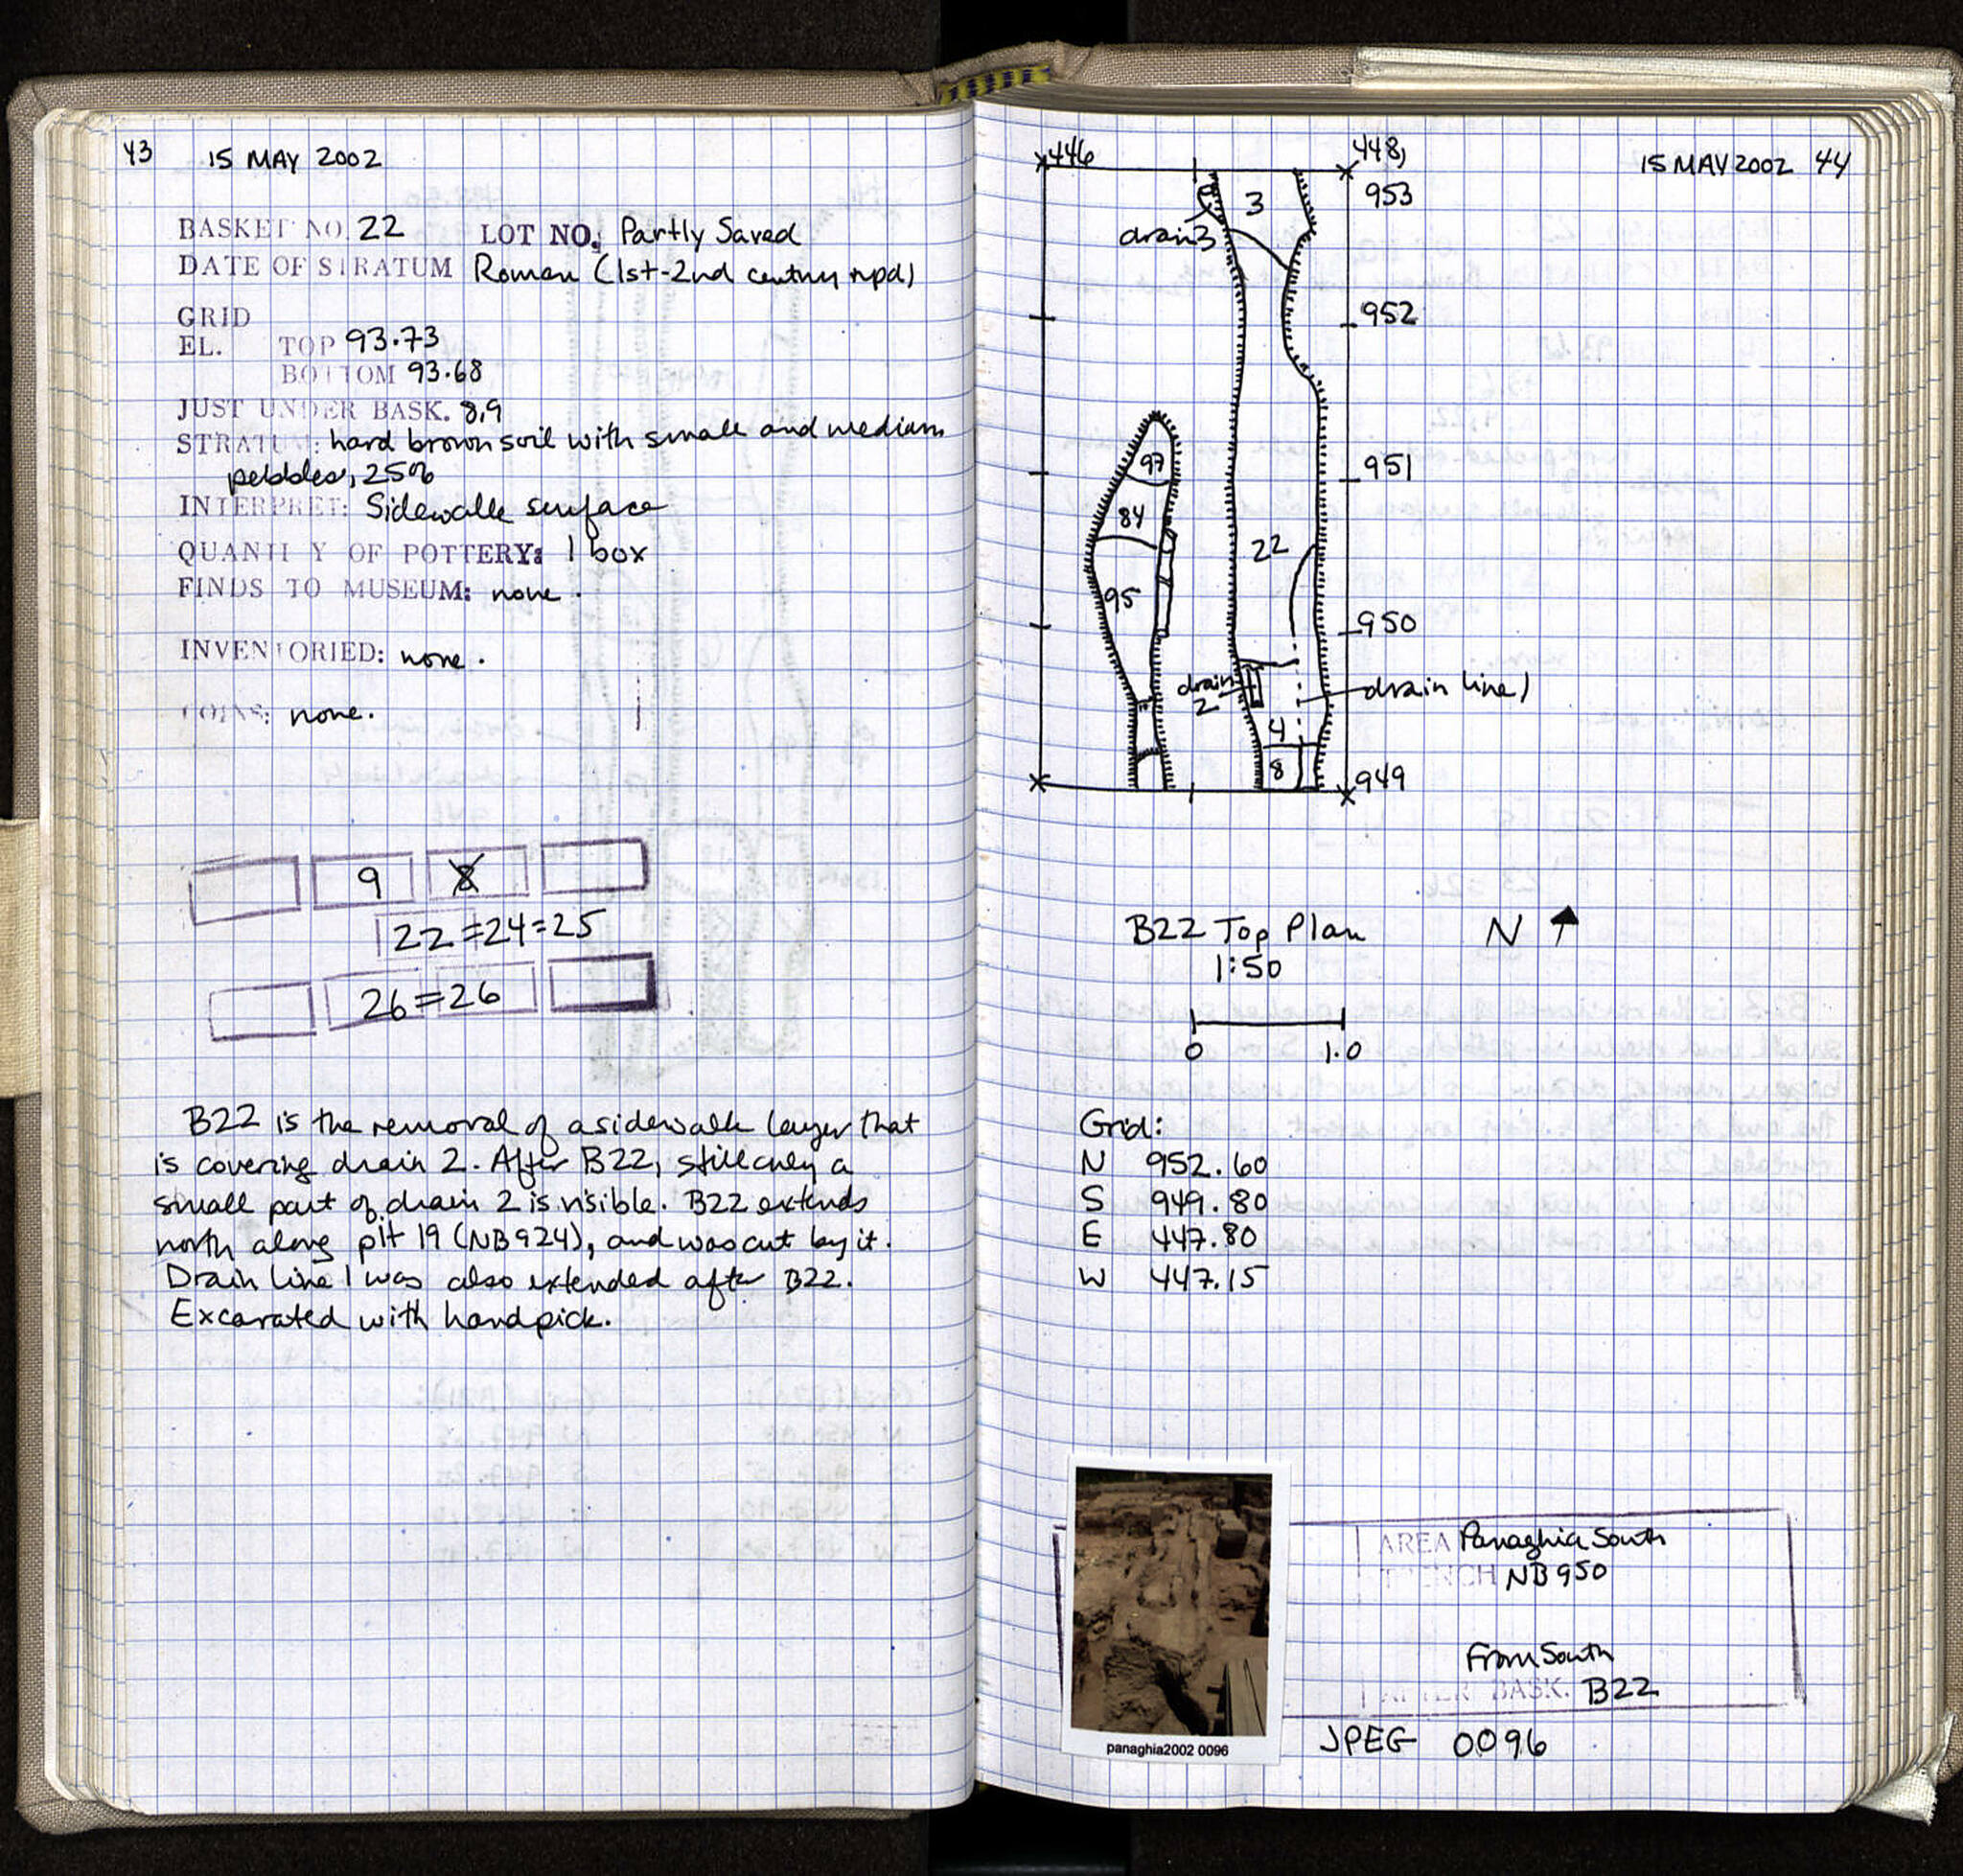 43 15 MAY 2002
BASKET NO. 22 LOT NO. Partly Saved
DATE OF STRATUM Roman (1st-2nd century npd)
GRID
EL. TOP 93.73
BOTTOM 93.68
JUST UNDER BASK. 8,9
STRATUM: hard brown soil with small and medium
pebbles, 25%
INTERPRET: Sidewalk surface
QUANTITY OF POTTERY: 1 box
FINDS TO MUSEUM: none.
INVENTORIED: none.
COINS: none.
9 8
22=24=25
26=26
B22 is the removal of a sidewalk layer that
is covering drain 2. After B22, still only a
small part of drain 2 is visible. B22 extends
north along pit 19 (NB924), and was cut by it.
Drain line 1 was also extended after B22.
Excavated with handpick.
15 MAY 2002 44
446 448,
953
3
drain 3
952
97
951
84
22
95
950
drain
2
drain line 1
4
8
949
B22 Top Plan N
1:50
0 1.0
Grid:
N 952.60
S 949.80
E 447.80
W 447.15
AREA Panaghia South
TRENCH NB950
From South
AFTER BASK. B22
panaghia2002 0096
JPEG 0096